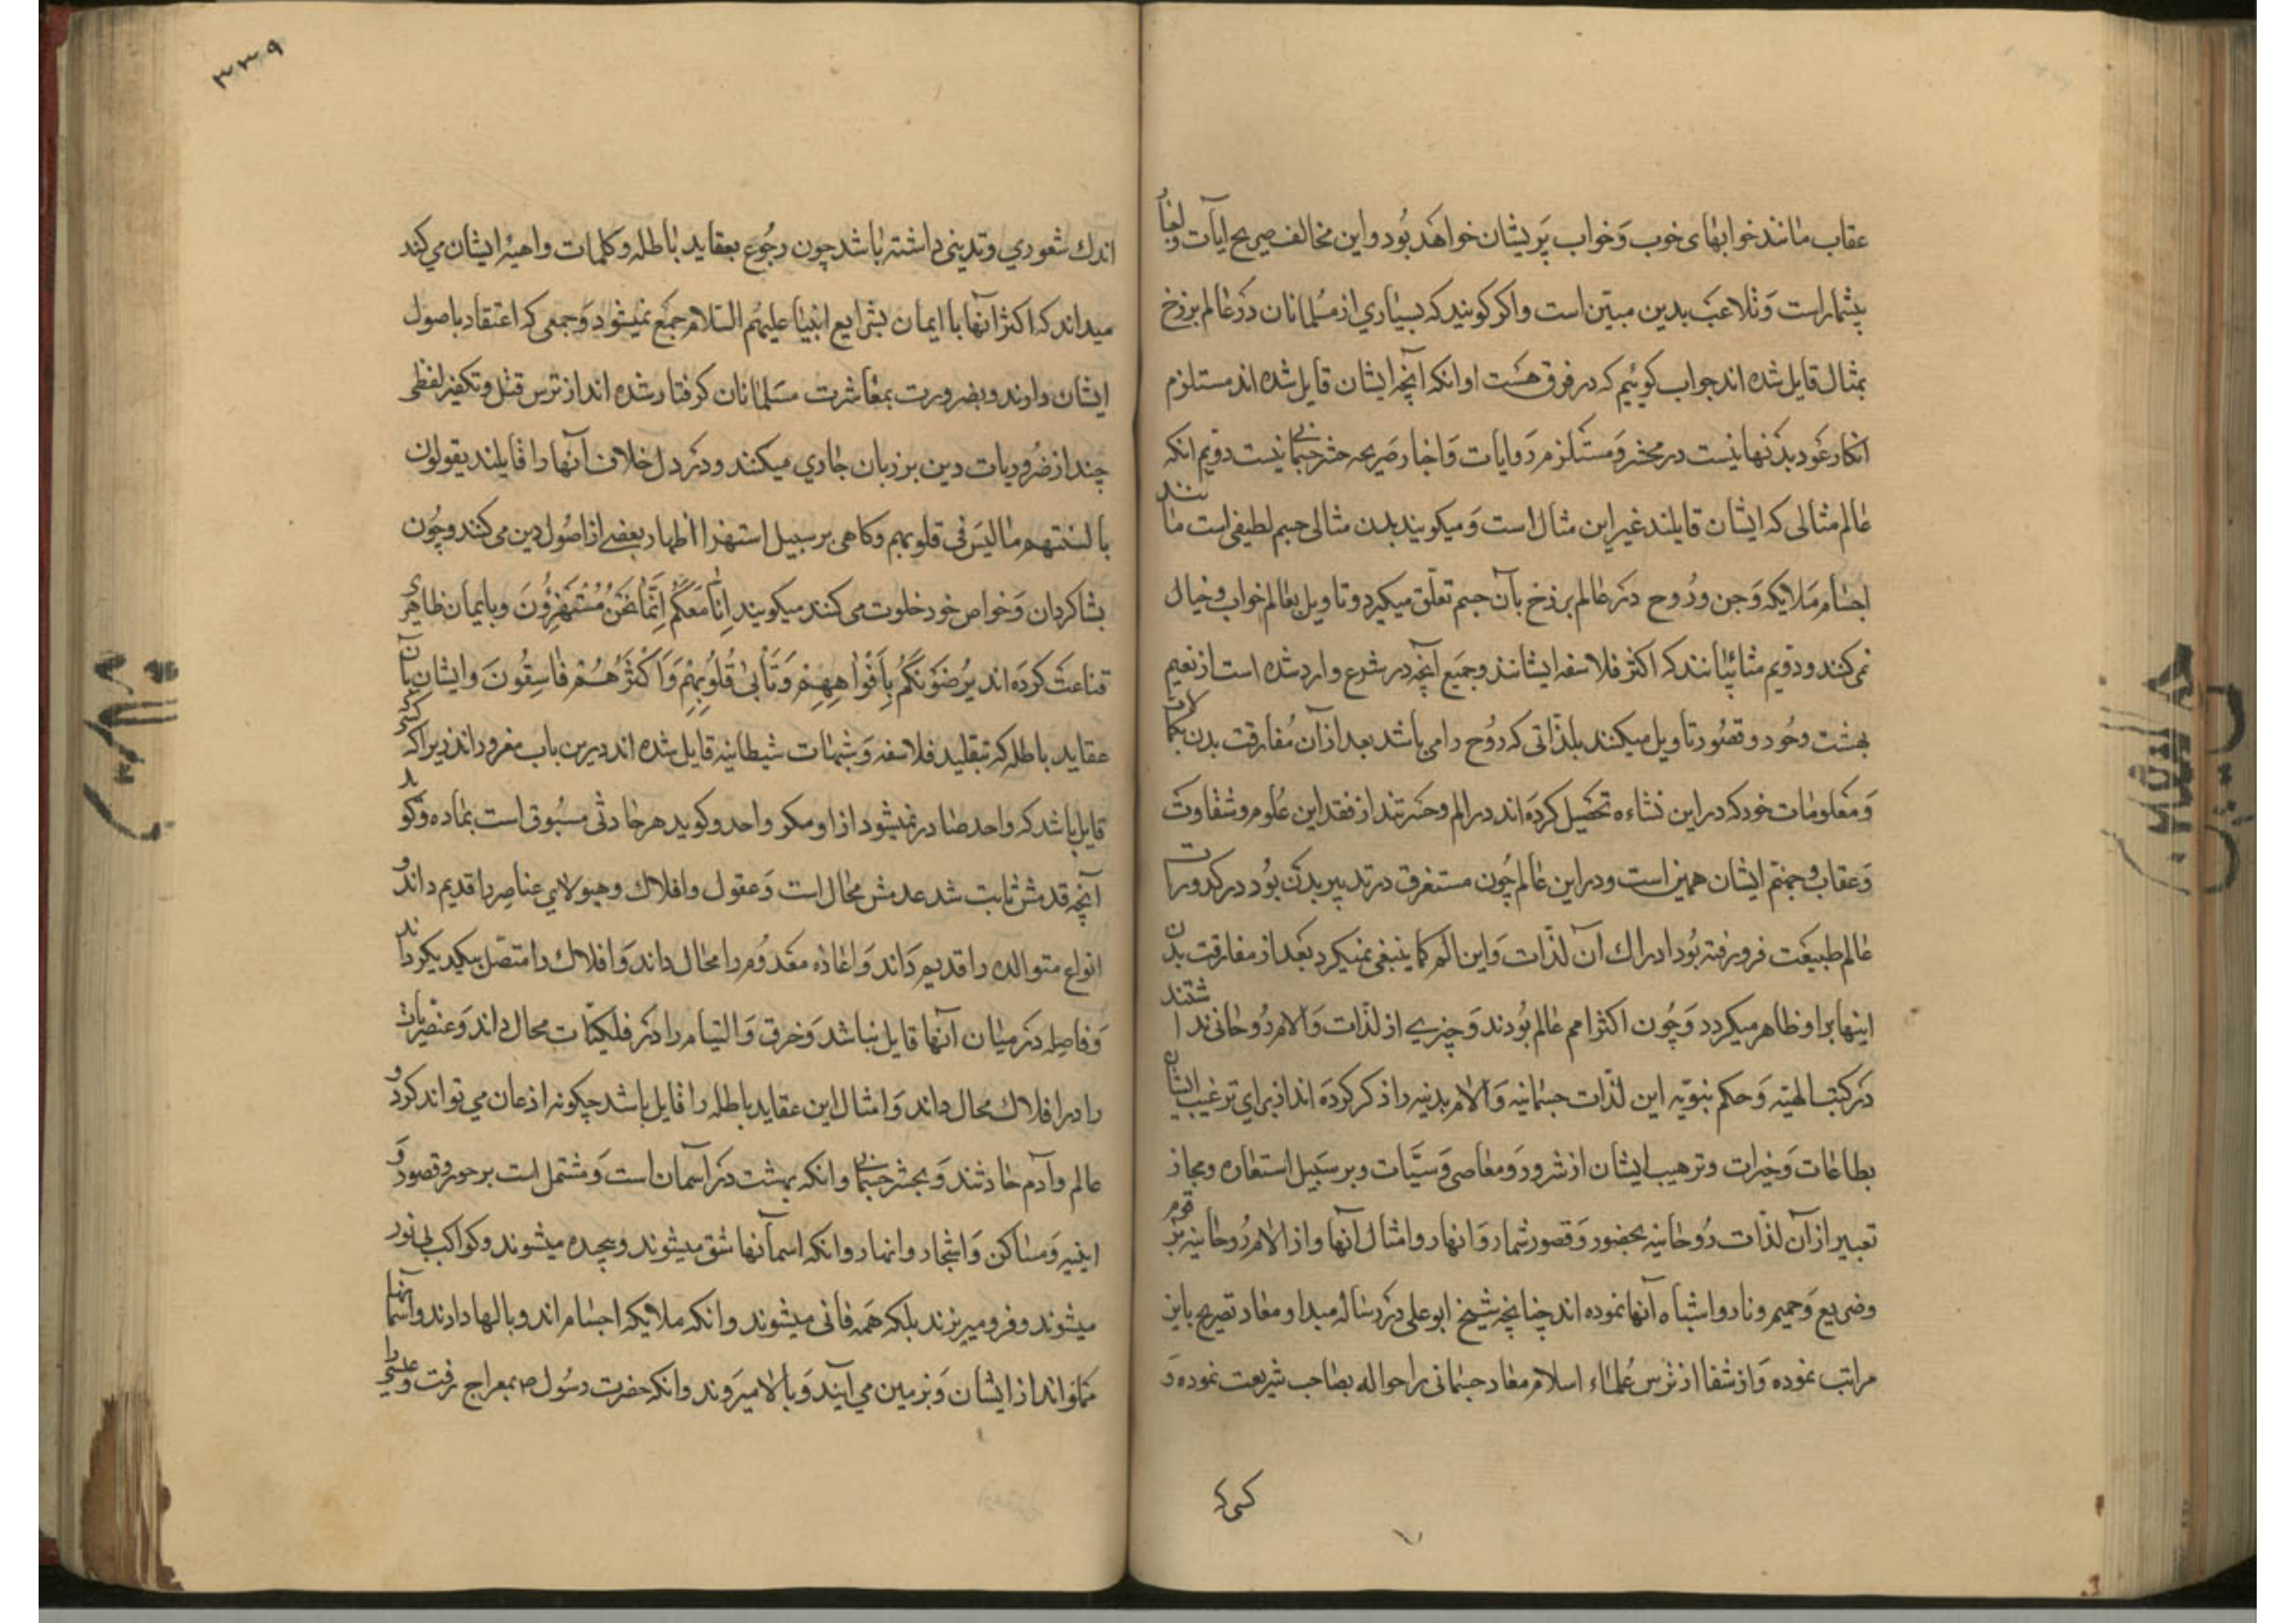 عقاب مانند خوابهای خوب و خواب پریشان خواهد بود و این مخالف صریح ایات و اخبار
بیشمار است و تلاعب بدین مبین است و اکر کویند که بسیاری از مسلمانان در عالم برزخ
بمثال قایل شده اند جواب کوئیم که در فرق هست اول انکه آنچه ایشان قایل شده اند مستلزم
انکار عود بدنها نیست در محشر و مستلزم رد ایات و اخبار صریحه حشر جسمانی نیست دویم انکه
عالم مثالی که ایشان قایلند غیر این مثال است و میکویند بدن مثالی جسم لطیفی است مانند
اجسام ملایکه و جن و روح در عالم برزخ بآن جسم تعلق میکیرد و تاویل بعالم خواب و خیال
نمی کنند و دویم مشائیانند که اکثر فلاسفه ایشانند و جمیع آنچه در شرع وارد شده است از نعیم
بهشت و حور و قصور تاویل میکنند بلذاتی که روح را می باشد بعد از آن مفارقت بدن بکمالات
و معلومات خود که در این نشاءه تحصیل کرده اند در الم و حسرتند از فقد این علوم و شقاوت
و عقاب و جهنم ایشان همین است و در این عالم چون مستغرق در تدبیر بدن بود در کدورات
عالم طبیعت فرو رفته بود ادراک آن لذات و این الم کما ینبغی نمیکرد بعد از مفارقت بدن
اینها برا و ظاهر میکردد و چون اکثر امم عالم بودند و چیزی از لذات و الام روحانی ندا شتند
در کتب الهیه و حکم نبویه این لذات جسمانیه و الام بدنیه را ذکر کرده اند از برای ترغیب ایشان
بطاعات و خیرات و ترهیب ایشان از شرور و معاصی و سیئات و بر سبیل استعاره و مجاز
تعبیر از آن لذات روحانیه بحضور و قصور شمار و انهار و امثال آنها و از الام روحانیه بزقوم
وضریع و حمیم و نار و اشباه آنها نموده اند چنانچه شیخ ابو علی در رساله مبدا و معاد تصریح باین
مراتب نموده و از شفا از ترس علماء اسلام معاد جسمانی را حواله بصاحب شریعت نموده و
کسی که
۳۳۹
اندک شعوری و تدینی داشته باشد چون رجوع بعقاید باطله و کلمات واهیه ایشان می کند
میداند که اکثر آنها با ایمان بشرایع انبیا علیهم السلام جمع نمیشود و جمعی که اعتقاد باصول
ایشان دارند و بضرورت بمعاشرت مسلمانان کرفتار شده اند از ترس قتل و تکفیر لفظی
چند از ضروریات دین بر زبان جاری میکنند و در دل خلاف آنها را قایلند یقولون
بالسنتهم ما لیس فی قلوبهم و کاهی بر سبیل استهزا اظهار بعضی از اصول دین می کنند و چون
بشاکردان و خواص خود خلوت می کنند میکویند اِنّا مَعَکُم اِنَّما نَحنُ مُستَهزِؤُنَ و بایمان ظاهری
قناعت کرده اند یُرضونَکُم بِاَفواهِهِم وَ تَأبی قُلُوبُهُم وَ اَکثَرُهُم فاسِقُونَ و ایشان بآن
عقاید باطله که تبقلید فلاسفه و شبهات شیطانیه قایل شده اند دیرین باب مغرور اند زیرا که کسی که
قایل باشد که واحد صادر نمیشود از او مکر واحد و کوید هر حادثی مسبوق است بماده و کوید
آنچه قدمش ثابت شد عدمش محال است و عقول و افلاک و هیولای عناصر را قدیم داند و
انواع متوالده را قدیم داند و اعاده معدوم را محال داند و افلاک را متصل بیکدیکر داند
و فاصله در میان آنها قایل نباشد و خرق و التیام را در فلکیات محال داند و عنصریات
را در افلاک محال داند و امثال این عقاید باطله را قایل باشد چکونه اذعان می تواند کرد و
عالم و آدم حادثند و بحشر جسمانی و انکه بهشت در آسمان است و مشتمل است بر حور و قصور و
ابنیه و مساکن و اشجار و انهار و انکه اسمآنها شق میشوند و پیچیده میشوند و کواکب بی نور
میشوند و فرو میریزند بلکه همه فانی میشوند و انکه ملایکه اجسام اند و بالها دارند و آسمانها
مملو اند از ایشان و بزمین می آیند و بالا میروند و انکه حضرت رسول ص بمعراج رفت و عیسی را